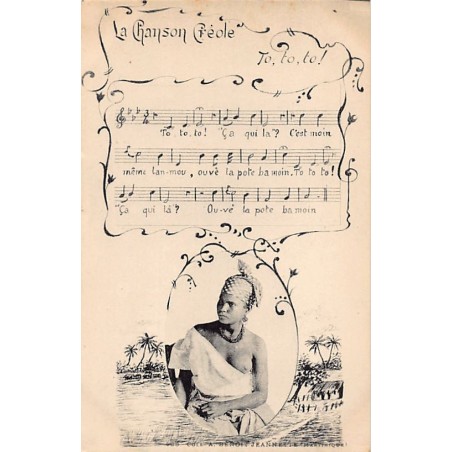 La Chanson Créole
To, to, to!
To, to, to! "Ça qui la"? C'est moin
même lan-mou, ouvè la pote ba moin, To to to!
"Ça qui là"? Ou-vè la pote ba moin
A. BENOIT JEANNETTE